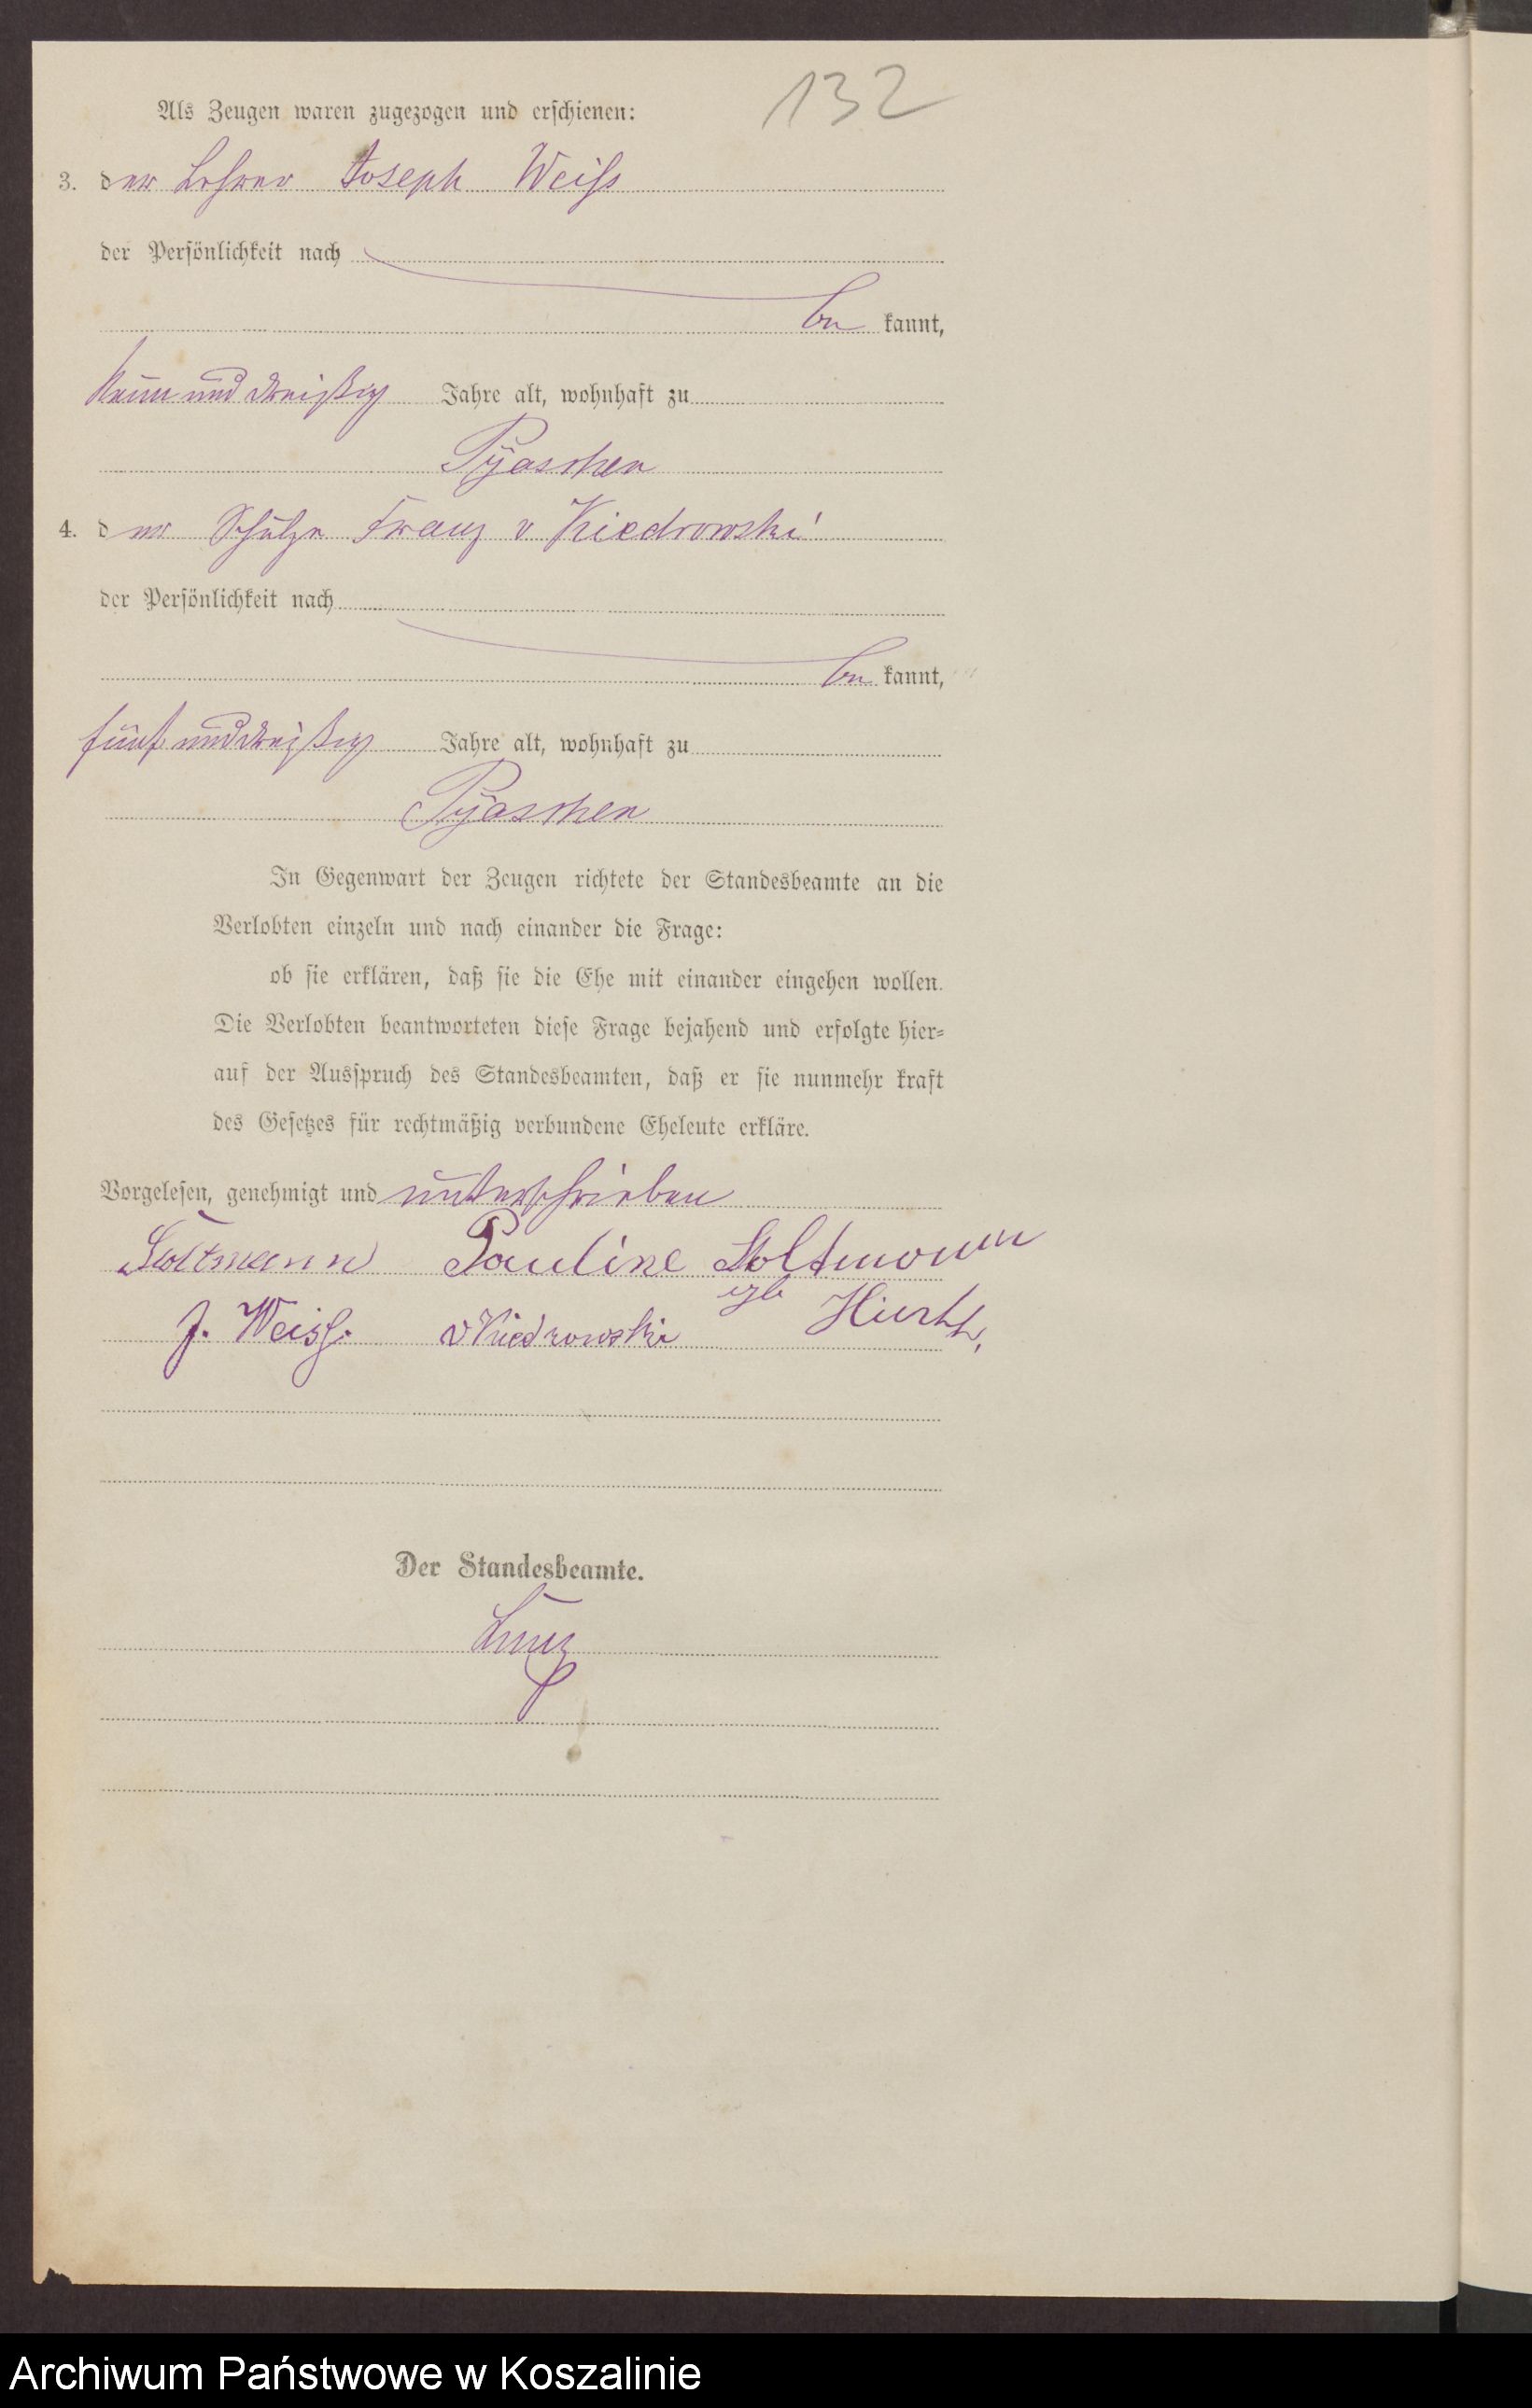 132
Als Zeugen waren zugezogen und erschienen:
3. der Lehrer Joseph Weiß
der Persönlichkeit nach
be kannt,
Neun und dreißig Jahre alt, wohnhaft zu
Pyaschen
4. der Schulze Franz v Kiedrowski
der Persönlichkeit nach
be kannt,
fünf und dreißig Jahre alt, wohnhaft zu
Pyaschen
In Gegenwart der Zeugen richtete der Standesbeamte an die
Verlobten einzeln und nach einander die Frage:
ob sie erklären, daß sie die Ehe mit einander eingehen wollen.
Die Verlobten beantworteten diese Frage bejahend und erfolgte hier-
auf der Ausspruch des Standesbeamten, daß er sie nunmehr kraft
des Gesetzes für rechtmäßig verbundene Eheleute erkläre.
Vorgelesen, genehmigt und unterschrieben
Stoltmann Pauline Stoltmann
geb Hirth,
J. Weiß. v Kiedrowski
Der Standesbeamte.
Archiwum Państwowe w Koszalinie